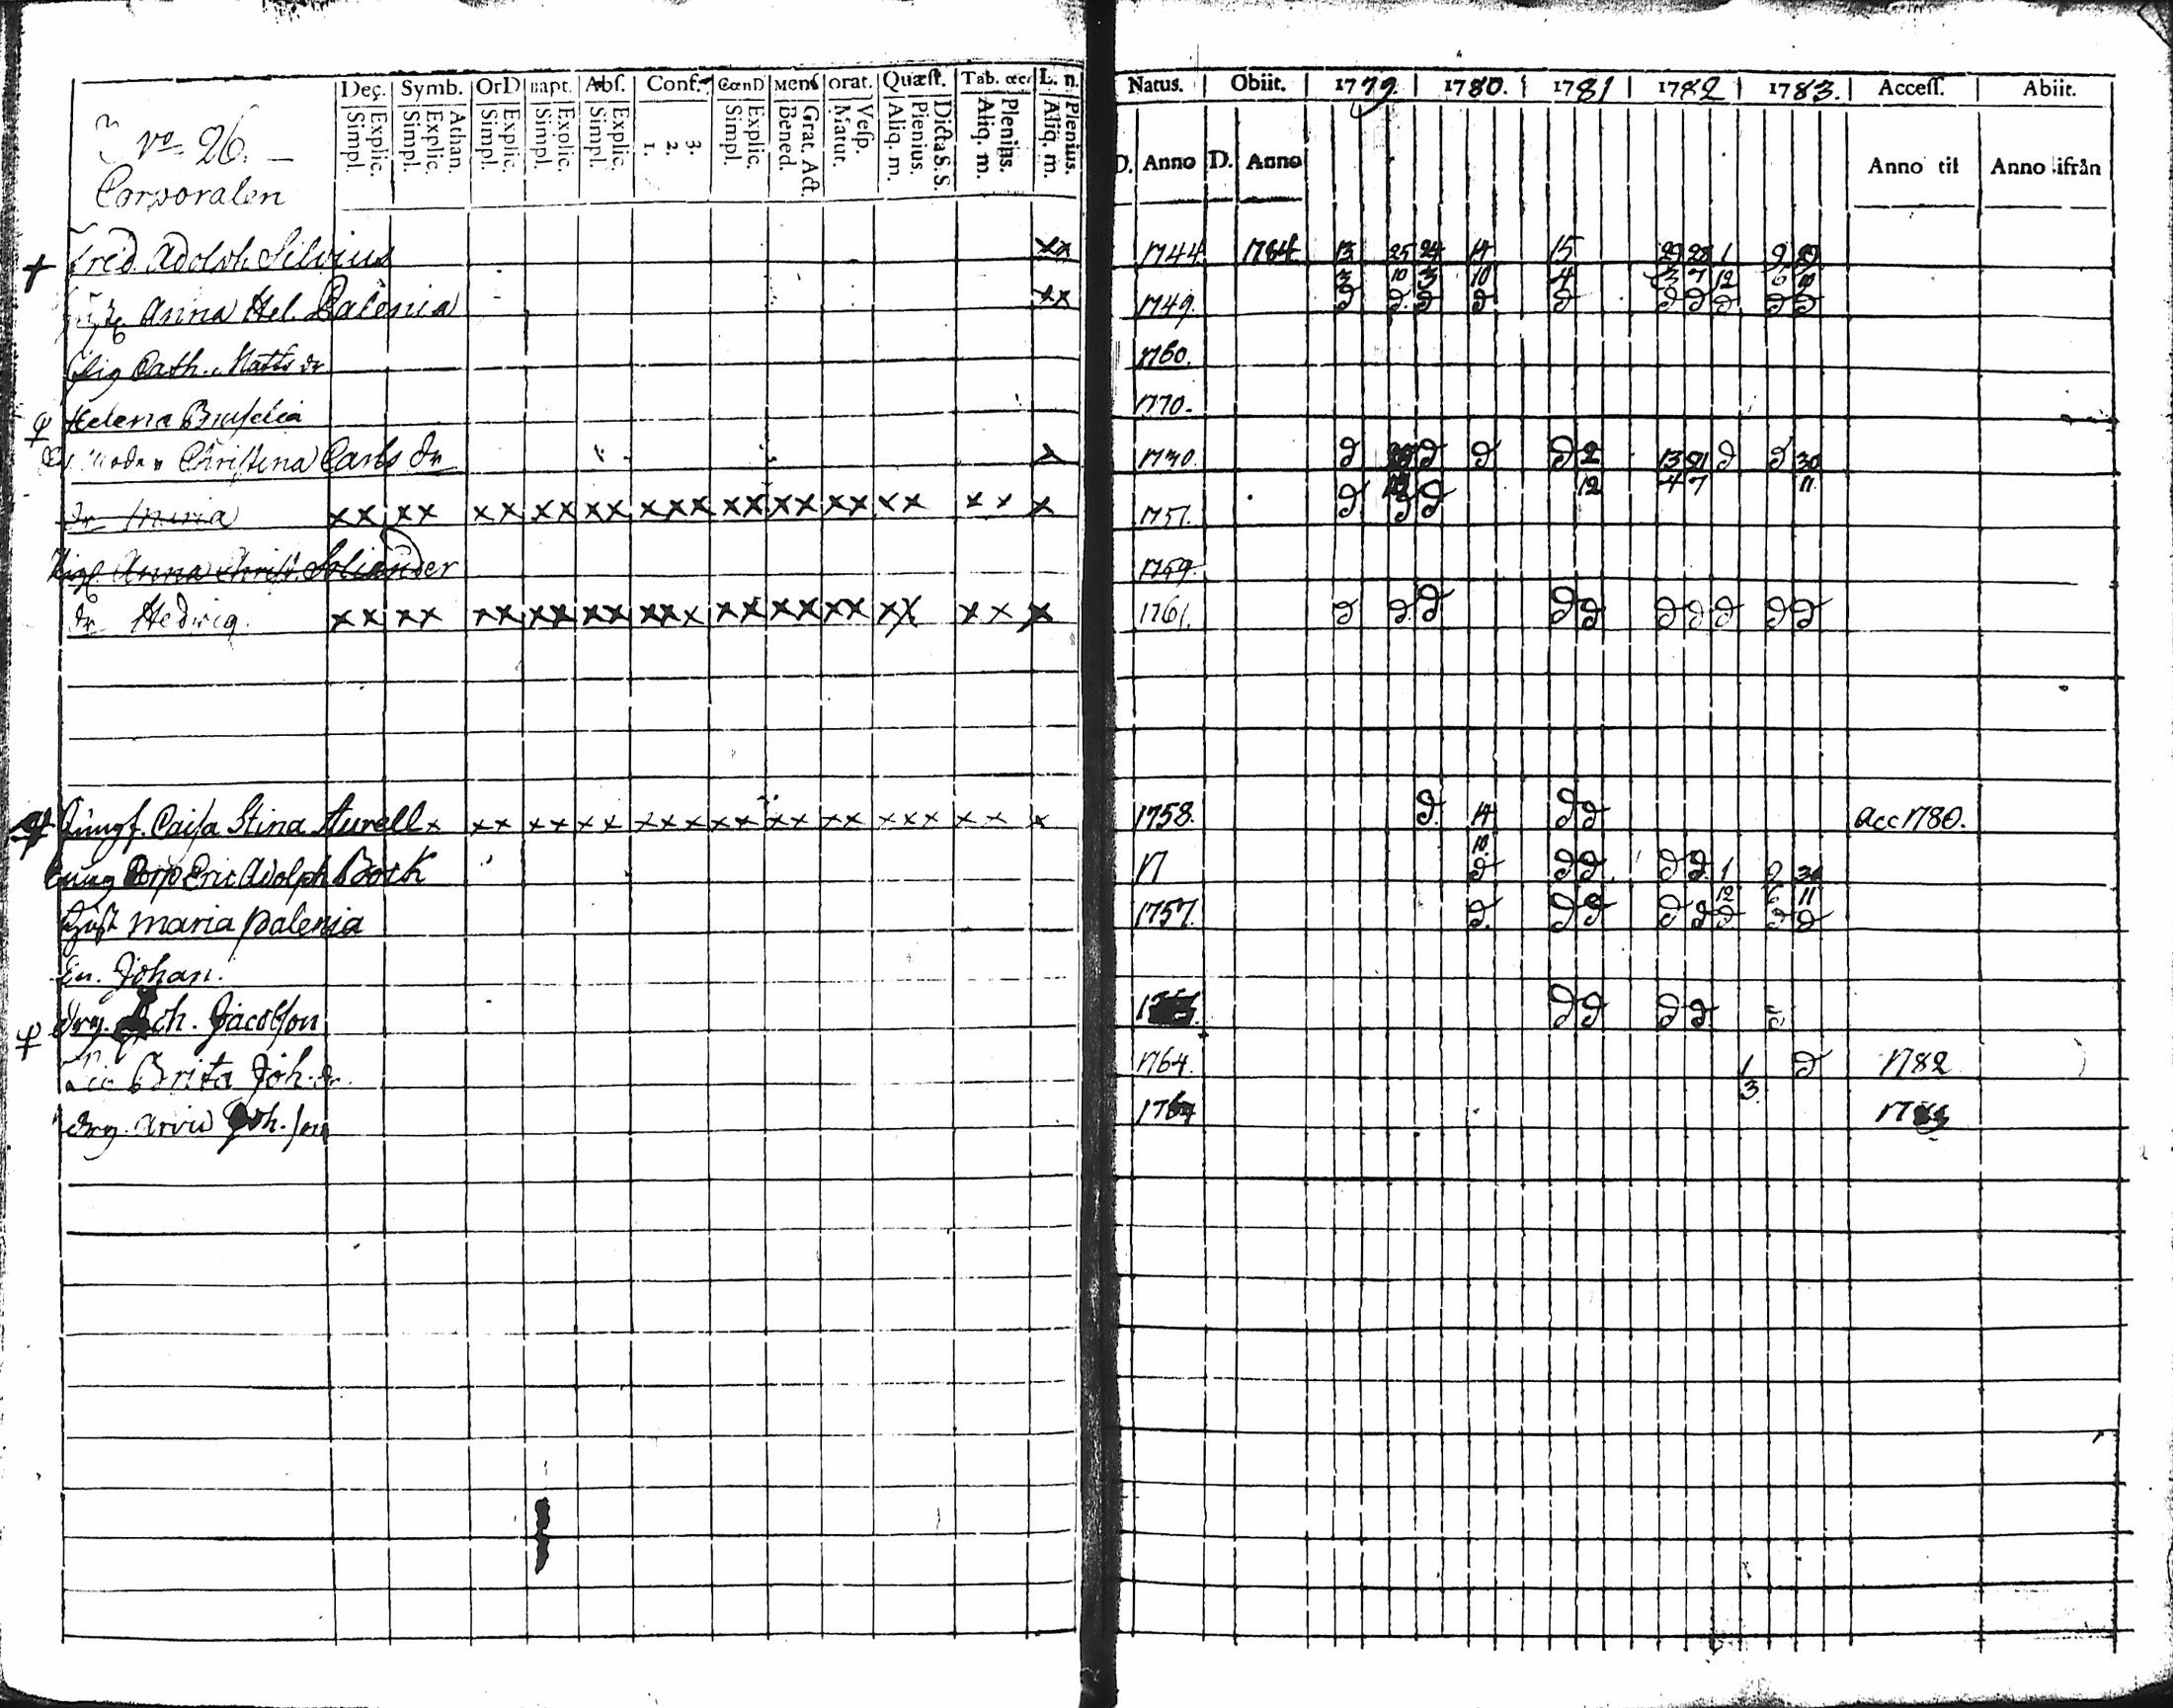 Dec. Symb. OrD Bapt. Abs. Conf. CœnD Mens orat. Quæst. Tab. œc. L. n. Natus. Obiit. 1779. 1780. 1781 1782 1783. Access. Abiit.
Simpl. Explic. Simpl. Explic. Athan. Simpl. Explic. Simpl. Explic. Simpl. Explic. 1. 2. 3. Simpl. Explic. Bened. Grat. Act. Matut. Vesp. Aliq. m. Plenius. Dicta S. S. Aliq. m. Plenius. Aliq. m. Plenius. D. Anno D. Anno Anno til Anno ifrån
No 26.
Corporalen
Fred. Adolph Silvius xx 1744 1764 13 25 24 14 15 29 28 1 9 29
3 10 3 10 4 3 7 12 6
Anna Hel. Palenia xx 1749. D D D D D D D D D D
Cath. Matts dr 1760.
Helena Bruselia 1770.
Christina Carls dr 1730. D D D D 2 13 21 D D 30
12 4 7 11
dr Maria xx xx xx xx xx xxx xx xx xx xx xx x 1751. D D D
Anna Christ. Soliander 1759.
dr Hedvig. xx xx xx xx xx xxx xx xx xx xx xx x 1761. D D D D D D D D D D
Jungf. Caisa Stina Aurell x xx xx xx xxx xx xx xx xxx xx x 1758. D 14 D D acc 1780.
10.
Corp Eric Adolph Bock 17 D D D D D 1 9 30
12 6 11
Hust Maria Palenia 1757. D. D D D D D D D
En. Johan.
Drg. Joh. Jacobson D D D D
Brita Joh. dr. 1764. 1 D 1782
3
Drg. Arvid Joh. son